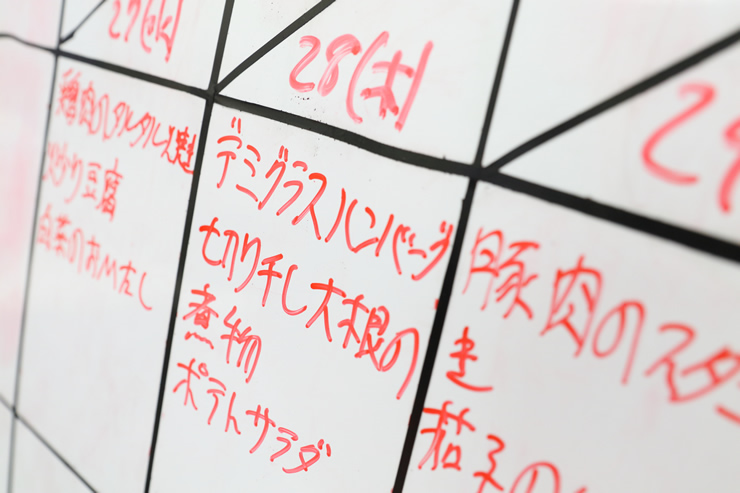 27(水)
28(木)
29
鶏肉のタルタル焼き
炒り豆腐
白菜のおひたし
デミグラスハンバーグ
切り干し大根の
煮物
ポテトサラダ
豚肉のスタミ
き
茄子の